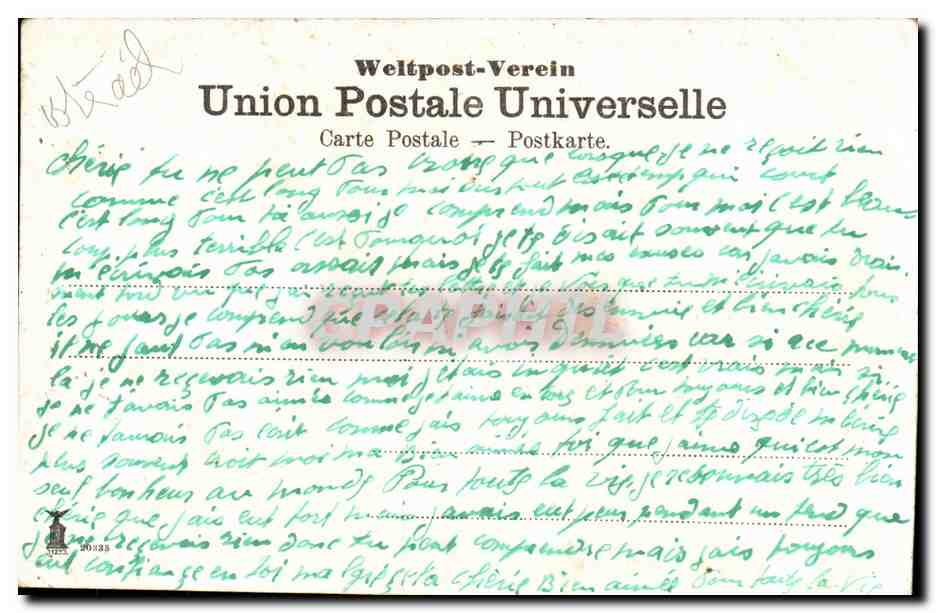 Weltpost-Verein
Union Postale Universelle
Carte Postale — Postkarte.
chérie tu ne peut pas croire que lorsque je ne reçoit rien
comme c'est long pour moi surtout le temp qui court
c'est long pour ta aussi je comprend mais pour moi c'est beau
coup plus terrible c'est pourquoi je te disait souvent que tu
m'écrivais pas assait mais je te fait mes excuses car javais vrai
ment que tu m'écrivais tous
les jours je comprend que et bien chérie
il ne faut pas m'en vouloir car si ce
la je ne recevais rien moi jetais inquiet c'est vrais mais si
je ne t'avais pas aimée comme je taime toujours et bien chérie
je ne taurais pas écrit comme jais toujours fait et
plus souvent croit moi ma bien aimée toi que jaime qui est mon
seul bonheur au monde Pour toute la vie, je reconnais très bien
chérie que jais eut tort javais eut peur pendant un que
je ne recevais rien donc tu peut comprendre mais jais toujours
eut confiance en toi malgré cela chérie Bien aimée Pour toute la vie
20335
CPAPHIL